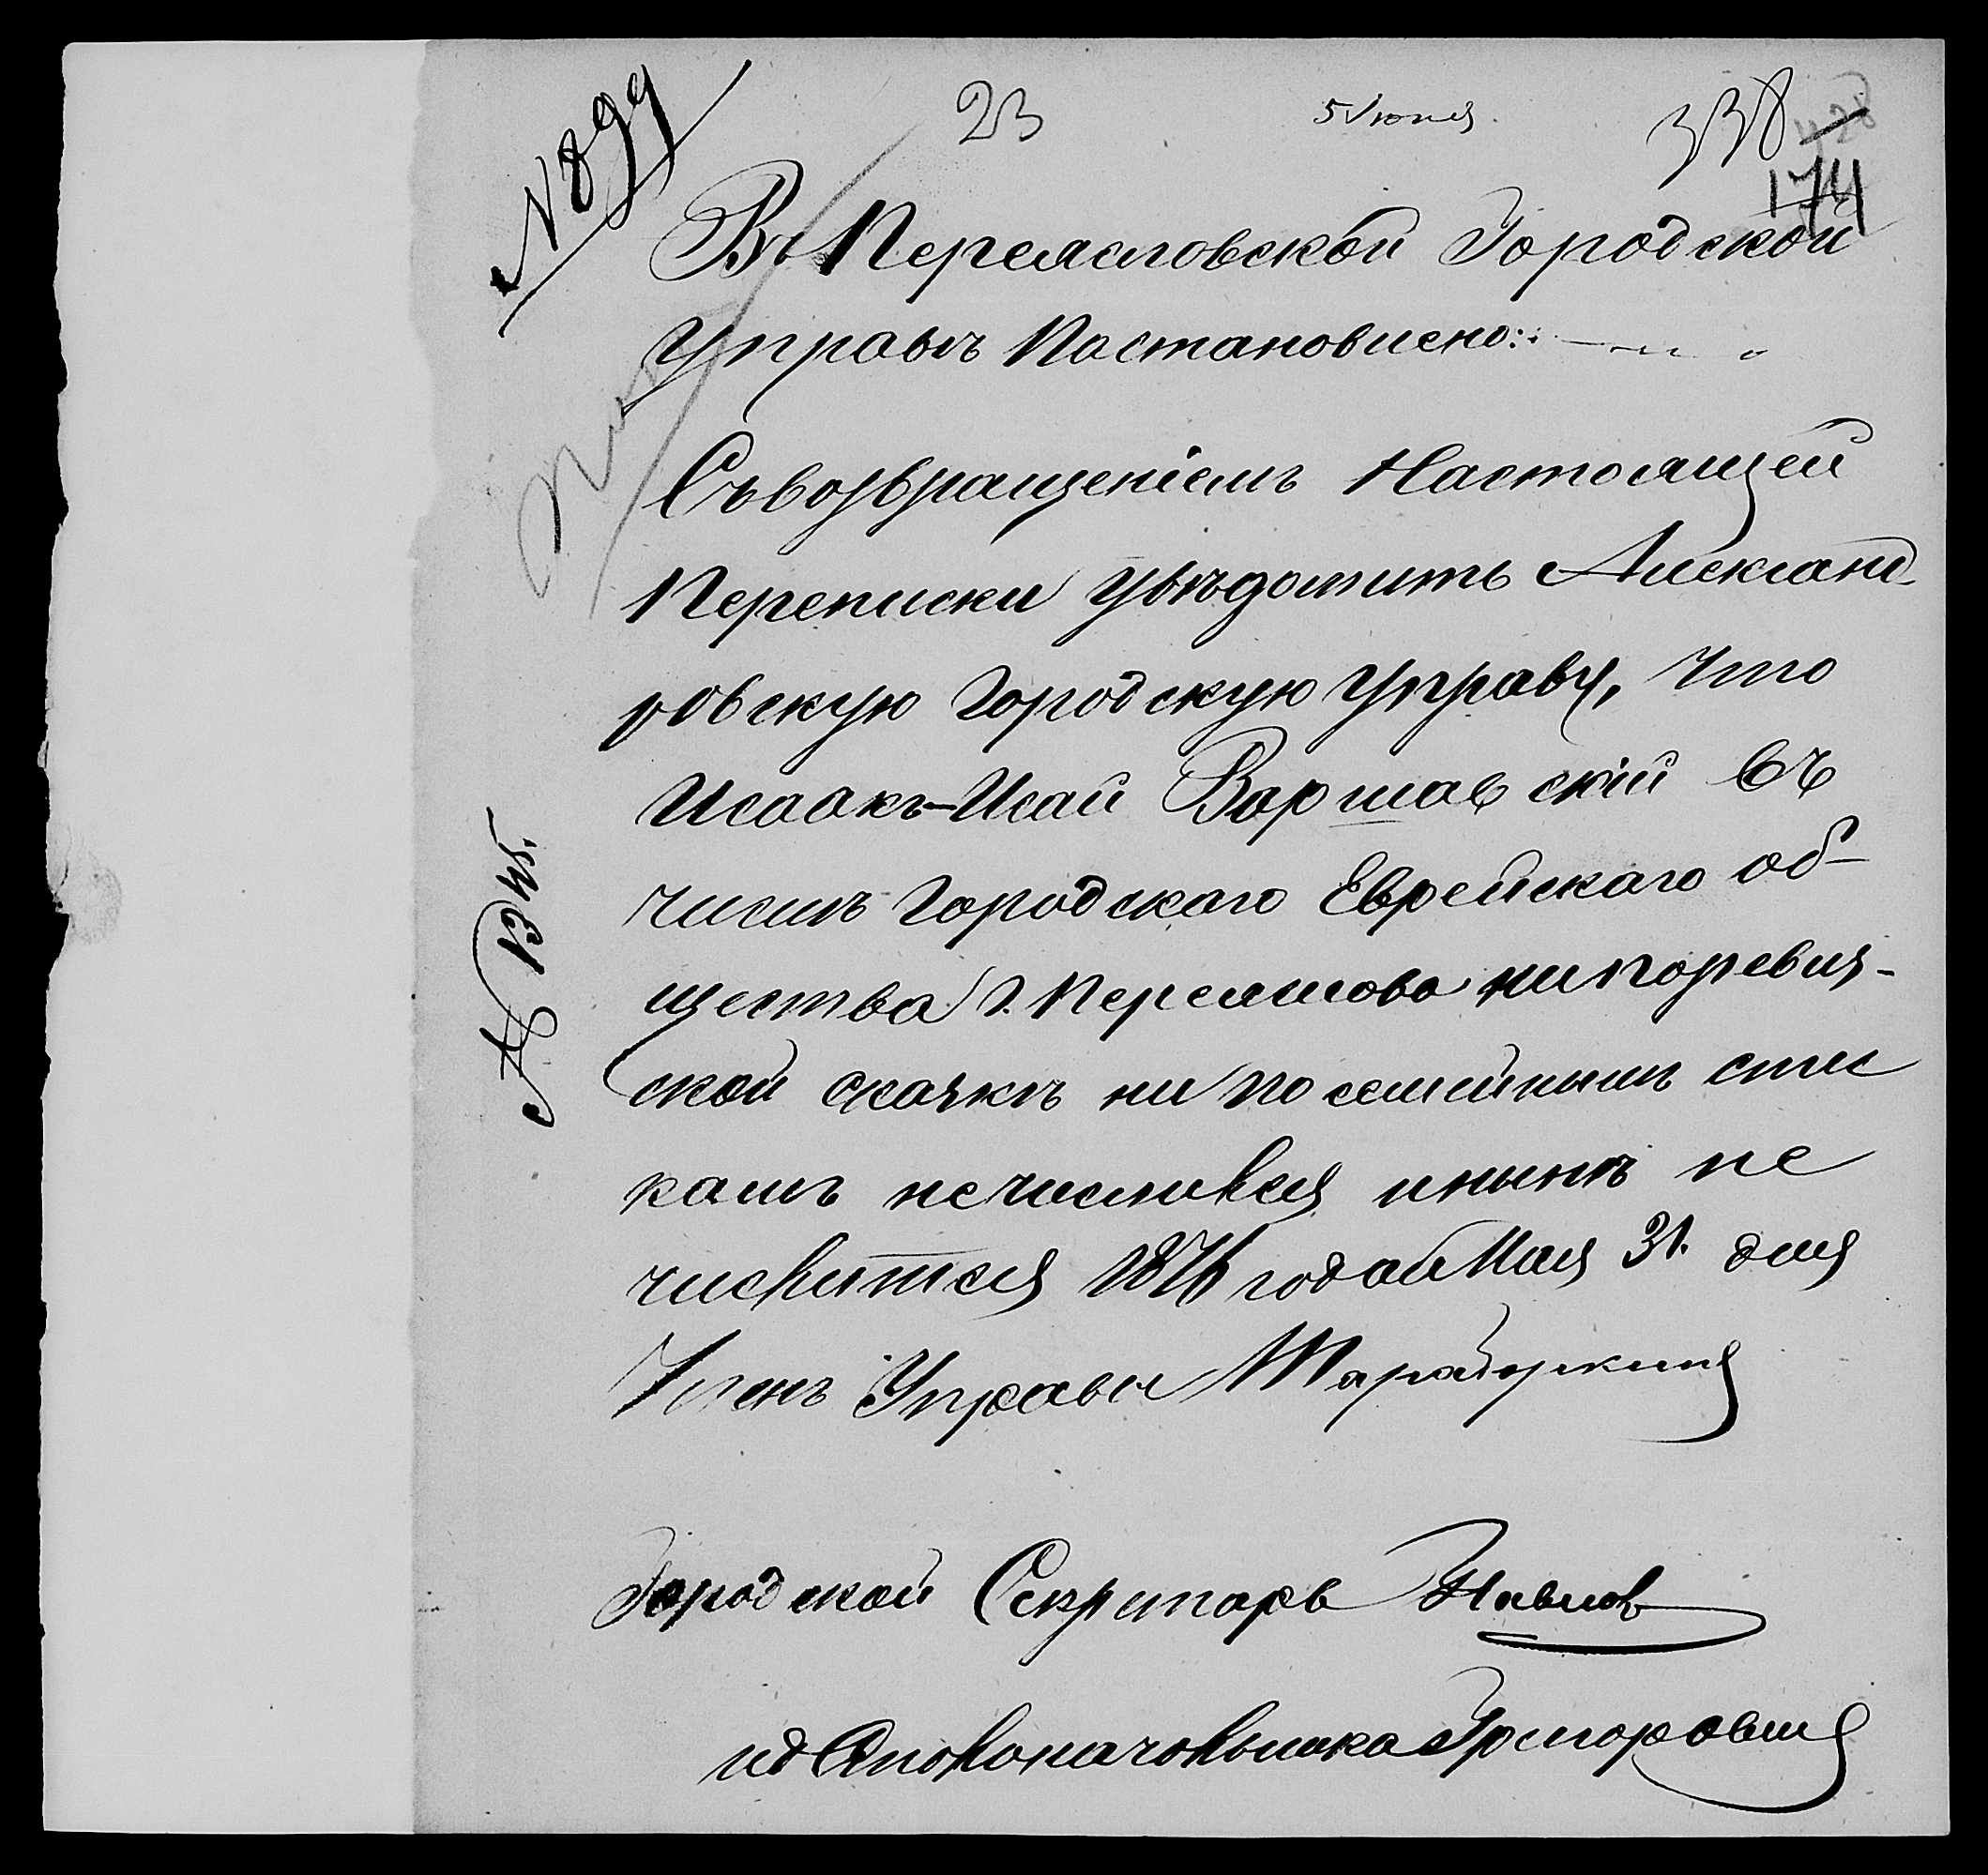 № 899
23
5 Июня
338
174
Въ Переяславской Городской
Управѣ Постановлено:
Съ возвращеніемъ Настоящей
Переписки увѣдомить Александ
ровскую Городскую Управу, что
Исаакъ-Исай Варшавскій въ
числѣ Городскаго Еврейскаго об-
щества г. Переяслова ни по ревиз-
ской скаскѣ ни по семейнымъ спис
камъ не числился и нынѣ не
числится 1876 года Мая 31. дня
Членъ Управы
Городской Секретарь Павлов
ид Столоначальника Григоровичъ